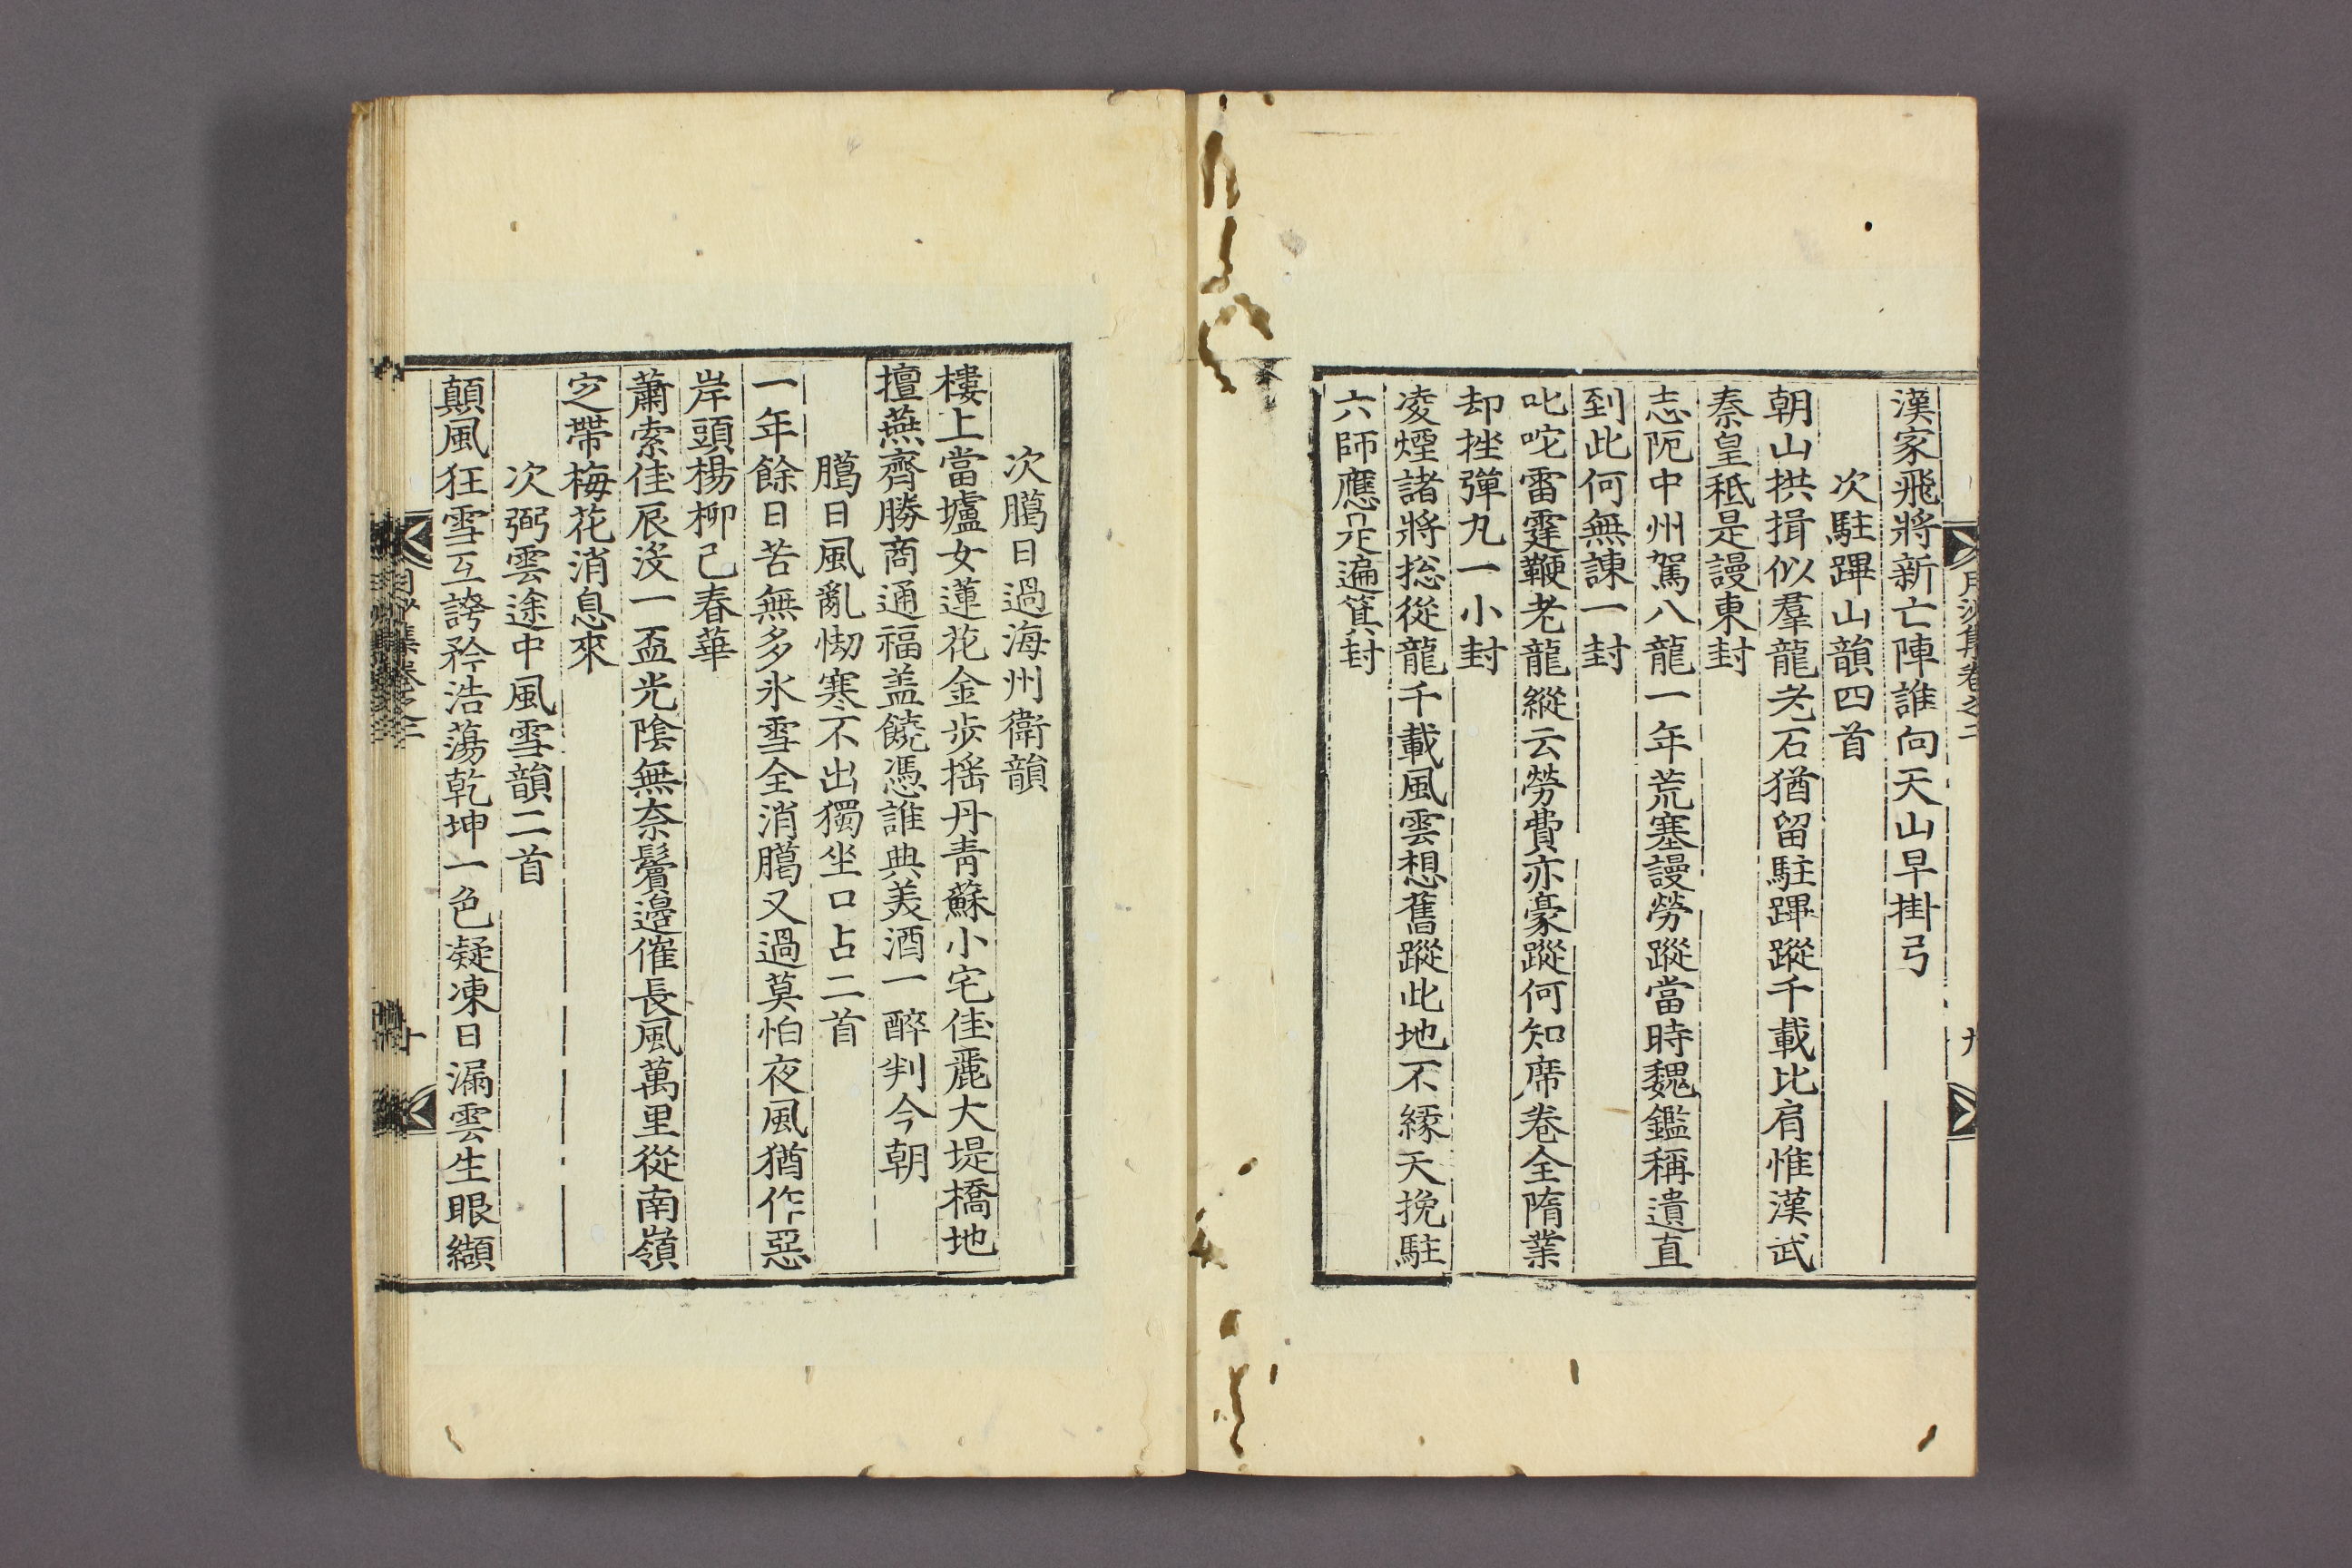 漢家飛將新亡陣誰向天山早掛弓
次駐蹕山韻四首
朝山拱揖似羣龍老石猶留駐蹕蹤千載比肩惟漢武
秦皇秪是謾東封
志阨中州駕八龍一年荒塞謾勞蹤當時魏鑑稱遺直
到此何無諫一封
叱咤雷霆鞭老龍縱云勞費亦豪蹤何知席卷全隋業
却挫彈丸一小封
凌煙諸將捴從龍千載風雲想舊蹤此地不緣天挽駐
六師應是遍箕封
月沙集卷之二
九
次臈日過海州衛韻
樓上當壚女蓮花金步搖丹青蘇小宅佳麗大堤橋地
擅燕齊勝商通福盖饒憑誰典美酒一醉判今朝
臈日風亂㤼寒不出獨坐口占二首
一年餘日苦無多氷雪全消臈又過莫怕夜風猶作惡
岸頭楊柳已春華
蕭索佳辰沒一盃光陰無奈鬢邊催長風萬里從南嶺
定帶梅花消息來
次弼雲途中風雪韻二首
顛風狂雪互誇矜浩蕩乾坤一色凝凍日漏雲生眼纈
月沙集卷之二
十